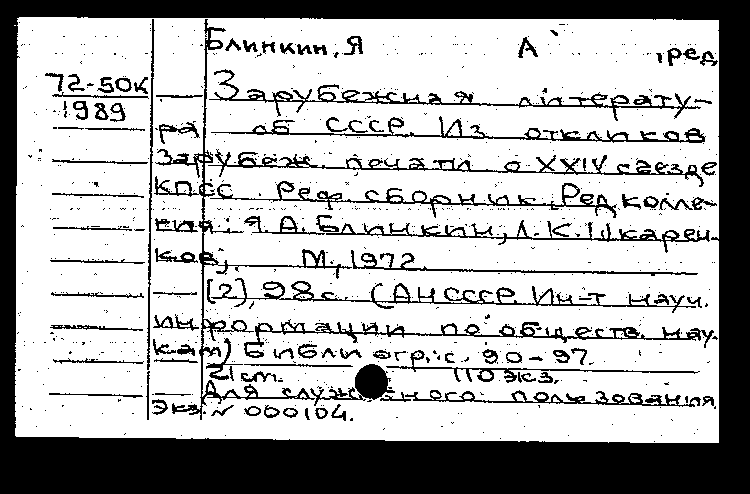 Блинкин, Я А , ред
72-50К
1989
Зарубежная литерату-
ра об СССР. Из откликов
зарубеж. печати о XXIV съезде
КПСС. Реф. сборник. Ред колле-
гия: Я. А. Блинкин, Л. К. Шкарен-
ков; М., 1972.
[2], 98 с. (АН СССР. Ин-т науч.
информации по обществ. нау-
кам) Библиогр.: с. 90-97.
21 cm. 110 экз.
Для служебного пользования.
Экз. № 000104.